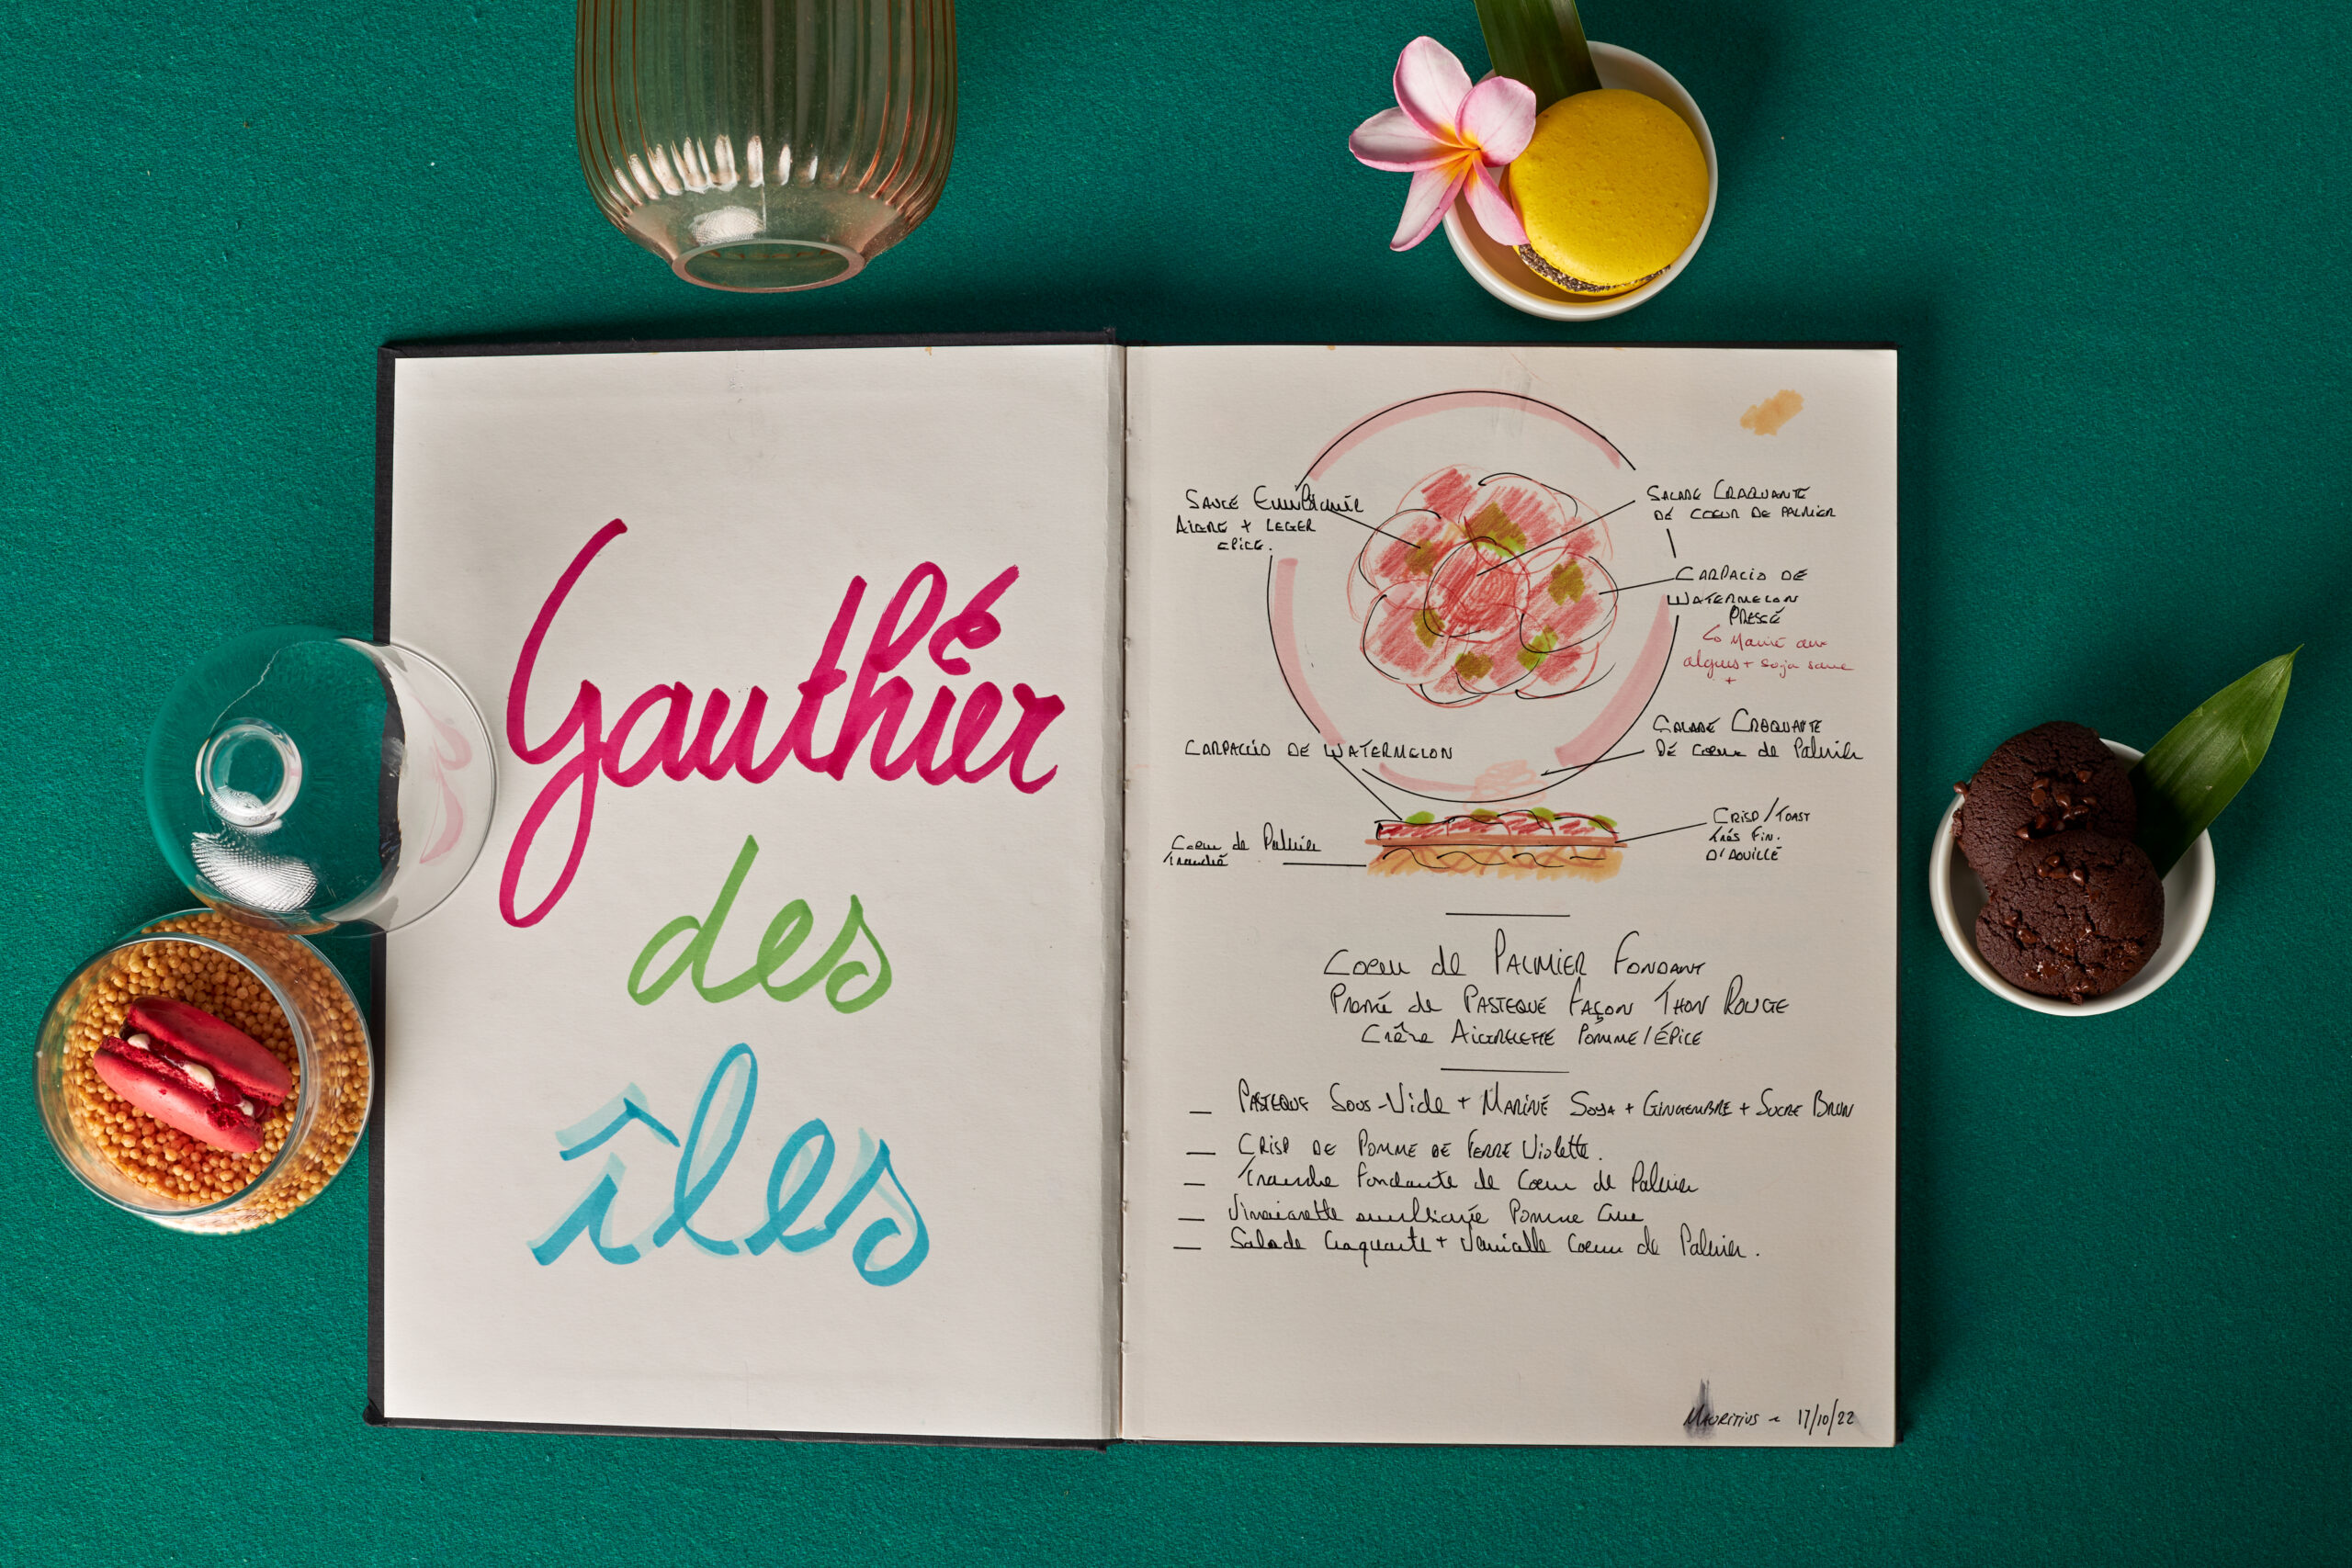 Gauthier
des
îles
SAUCE
AIGRE + LEGER
EPICE.
SALADE CRAQUANTE
DE COEUR DE PALMIER
CARPACIO DE
WATERMELON
PRESSÉ
algues + soja sauce
+
CARPACCIO DE WATERMELON
SALADE CRAQUANTE
DE COEUR de Palmier
Coeur de Palmier
Tranché
CRISP/TOAST
très Fin.
COEUR de PALMIER FONDANT
de PASTEQUE FAÇON THON ROUGE
AIGRELETTE POMME/ÉPICE
— PASTEQUE SOUS-Vide + MARINÉ SOYA + GINGEMBRE + SUCRE BRUN
— CRISP DE POMME DE TERRE Violette.
— Tranche Fondante de Coeur de Palmier
— Vinaigrette Pomme
— Salade Craquante + Coeur de Palmier.
MAURITIUS ~ 17/10/22